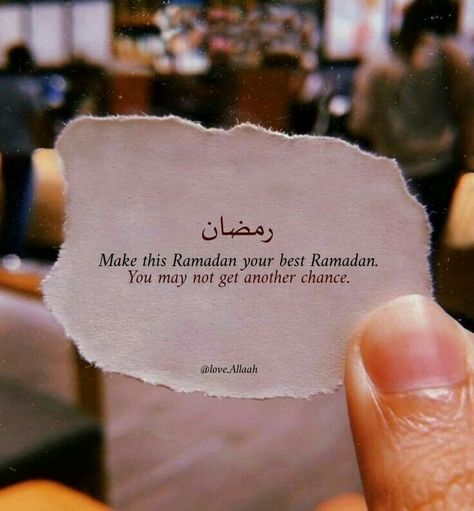 رمضان
Make this Ramadan your best Ramadan.
You may not get another chance.
@love.Allaah